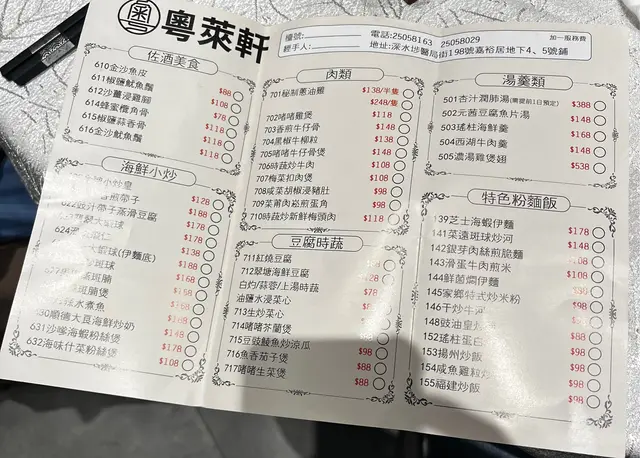 粵萊軒
檯號:
經手人:
電話:25058163 25058029
加一服務費
地址:深水埗醫局街198號嘉裕居地下4、5號鋪
佐酒美食
610金沙魚皮 $88
611椒鹽魷魚鬚 $108
612沙薑浸雞腳 $78
614蜂蜜欖角骨 $118
615椒鹽蒜香骨 $118
616金沙魷魚鬚 $118
海鮮小炒
$128
$188
$178
$138
大蝦球(伊麵底) $188
斑球 $168
$158
630順德大良海鮮炒奶
631沙嗲海蝦粉絲煲 $178
632海味什菜粉絲煲 $108
肉類
701秘制蔥油雞 $138/半隻
$248/隻
702啫啫雞煲 $118
703香煎牛仔骨 $148
704黑椒牛柳粒 $138
705啫啫牛仔骨煲 $148
706時蔬炒牛肉 $108
707梅菜扣肉煲 $108
708咸菜胡椒浸豬肚 $98
709菜莆肉崧煎蛋角 $98
710時蔬炒新鮮梅頭肉 $118
豆腐時蔬
711紅燒豆腐
712翠塘海鮮豆腐
白灼/蒜蓉/上湯時蔬 $78
油鹽水浸菜心
713生炒菜心
714啫啫芥蘭煲
715豆豉鯪魚炒涼瓜 $98
716魚香茄子煲 $88
717啫啫生菜煲 $88
湯羹類
501杏汁潤肺湯(需提前1日預定) $388
502元茜豆腐魚片湯 $148
503瑤柱海鮮羹 $168
504西湖牛肉羹 $148
505濃湯雞煲翅 $538
特色粉麵飯
139芝士海蝦伊麵 $178
141菜遠斑球炒河 $148
142銀芽肉絲煎脆麵
143滑蛋牛肉煎米 $108
144鮮菌燜伊麵
145家鄉特式炒米粉
146干炒牛河
148豉油皇炒
152瑤柱蛋白
153揚州炒飯 $98
154咸魚雞粒炒 $98
155福建炒飯 $98
$98